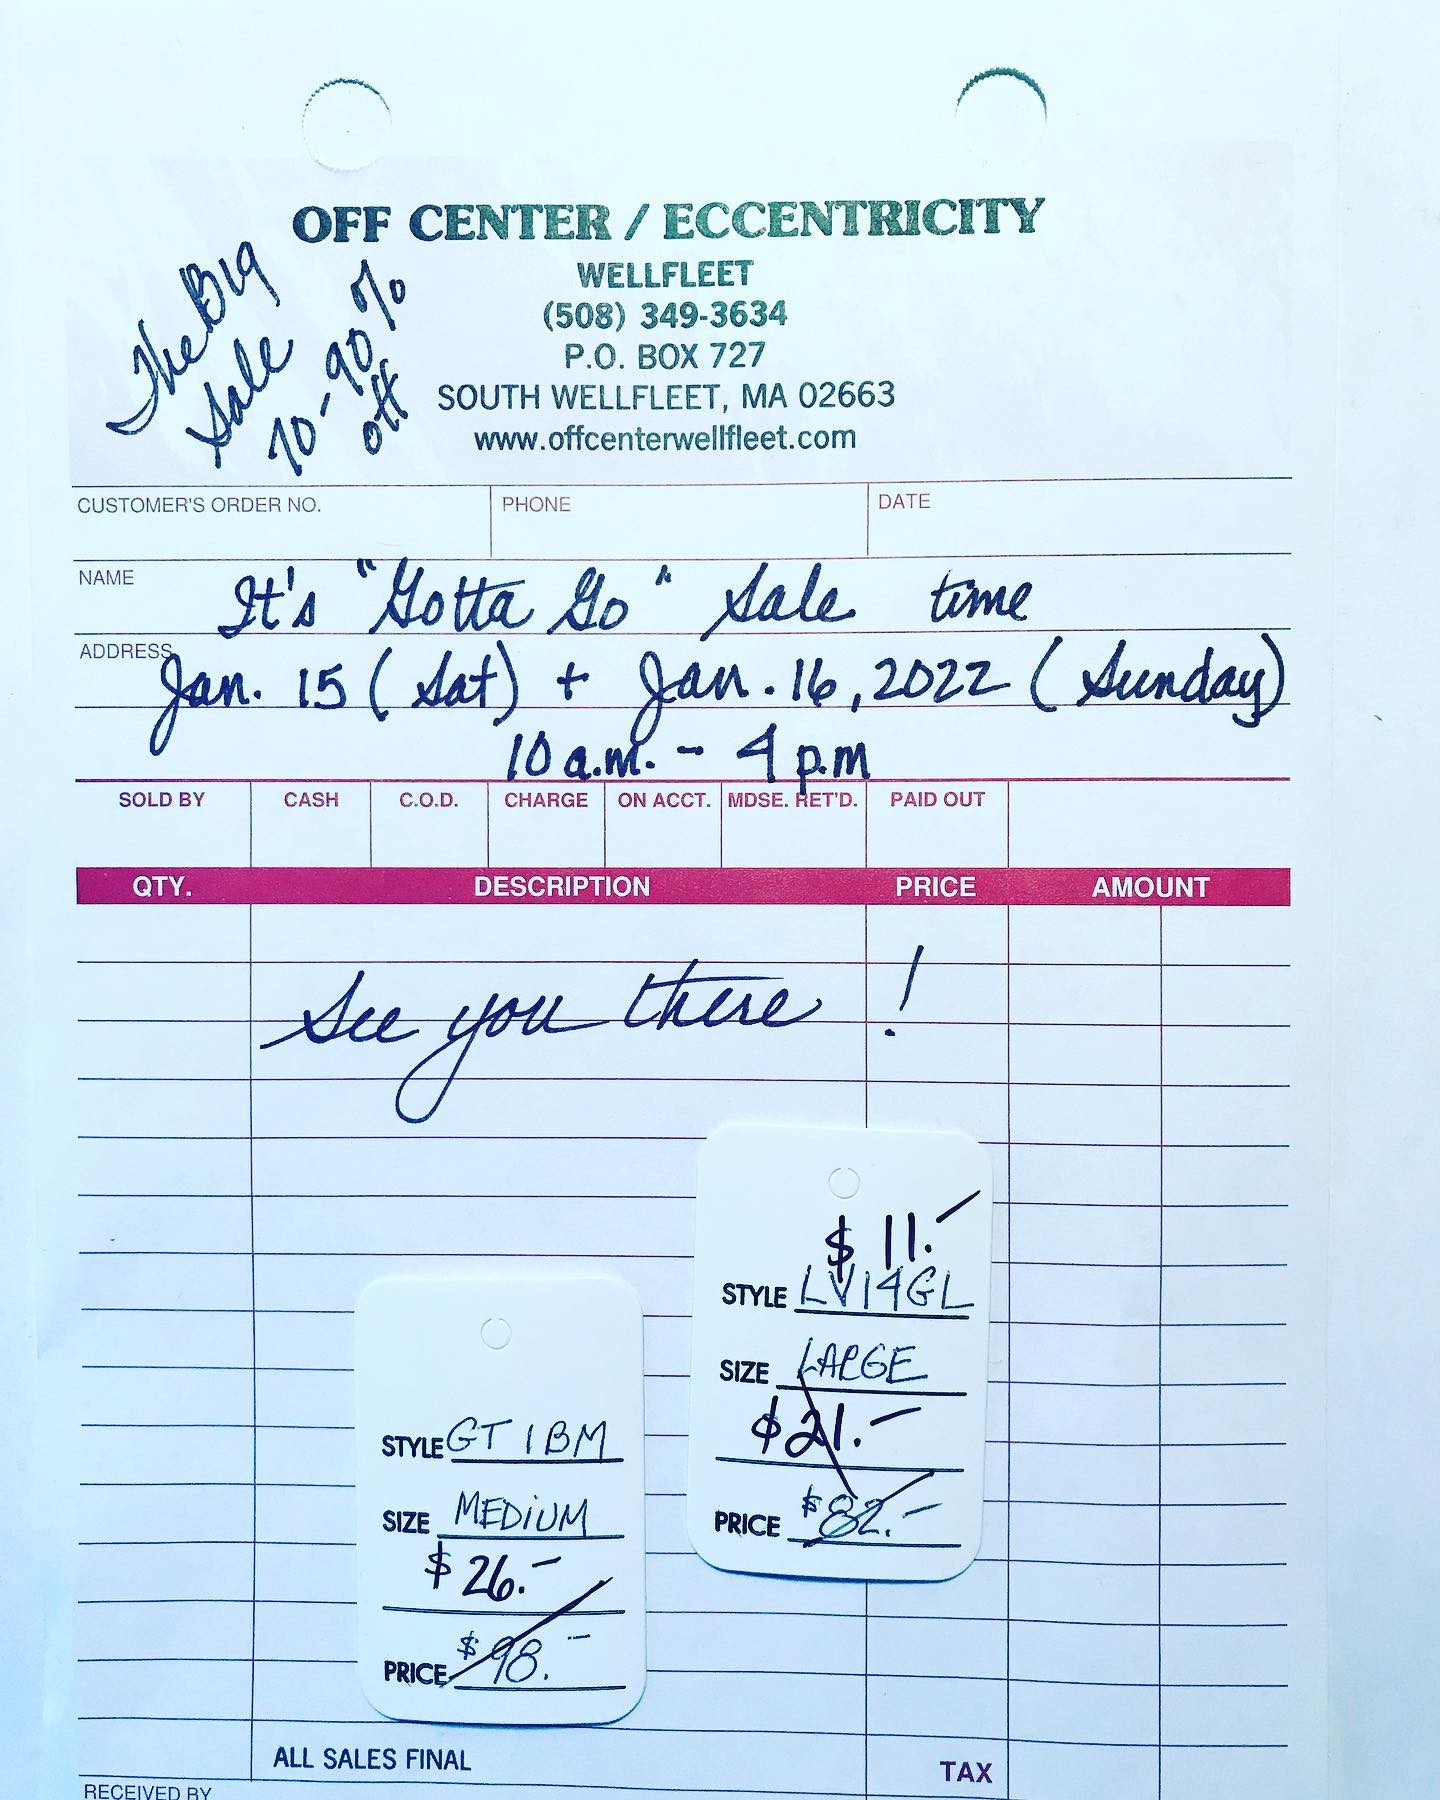 OFF CENTER / ECCENTRICITY
WELLFLEET
(508) 349-3634
P.O. BOX 727
SOUTH WELLFLEET, MA 02663
www.offcenterwellfleet.com
The Big
Sale
70-90%
off
CUSTOMER'S ORDER NO. PHONE DATE
NAME It's "Gotta Go" Sale time
ADDRESS Jan. 15 (Sat) + Jan. 16, 2022 (Sunday)
10 a.m. - 4 p.m
SOLD BY CASH C.O.D. CHARGE ON ACCT. MDSE. RET'D. PAID OUT
QTY. DESCRIPTION PRICE AMOUNT
See you there !
$ 11.-
STYLE LV14GL
SIZE LARGE
$21.-
PRICE $82.-
STYLE GT1BM
SIZE MEDIUM
$ 26.-
PRICE $98.-
ALL SALES FINAL TAX
RECEIVED BY